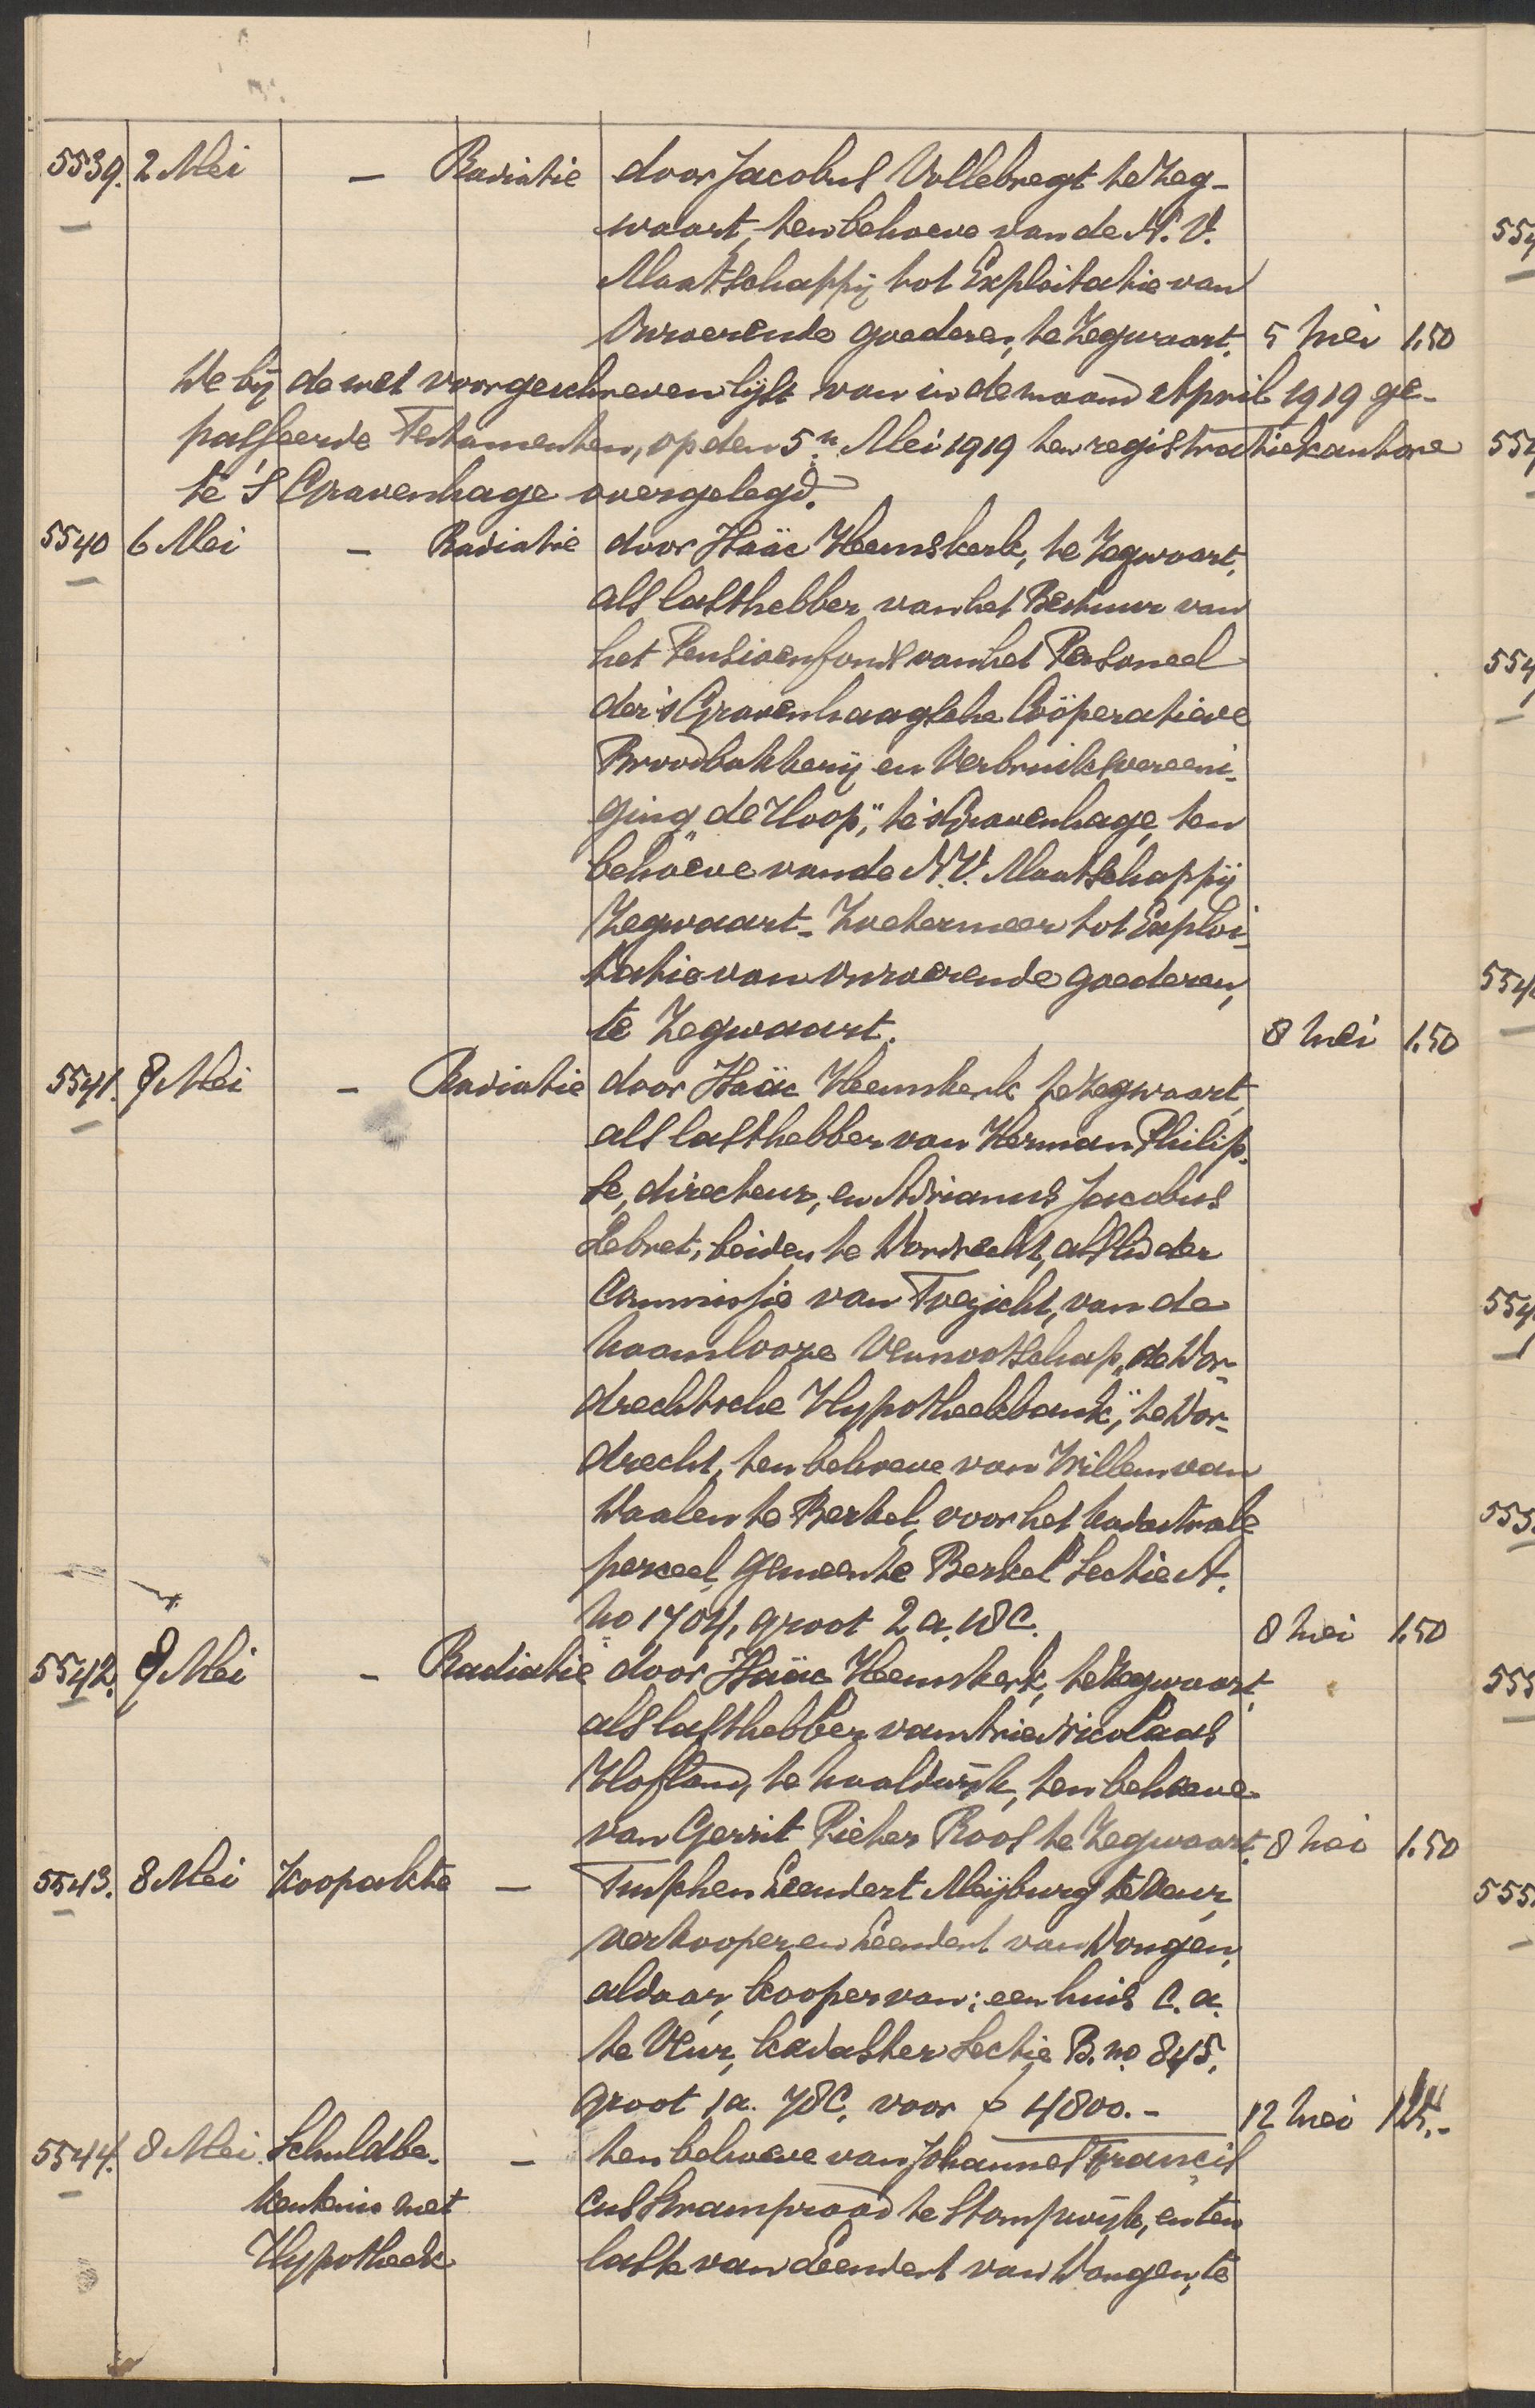 5539. 2 Mei — Radiatie door Jacobus Vollebregt te Zeg-
waart, ten behoeve van de N.V.
Maatschappij tot Exploitatie van
Onroerende goederen, te Zegwaart. 5 Mei 1.50
De bij de wet voorgeschreven lijst van in de maand April 1919 ge-
passeerde Testamenten, op den 5n Mei 1919 ten registratiekantore
te 's Gravenhage overgelegd.
5540 6 Mei — Radiatie door Isaäc Heemskerk, te Zegwaart,
als lasthebber van het Bestuur van
het Pensioenfonds van het Personeel
der 's Gravenhaagsche Coöperatieve
Broodbakkerij en Verbruiksvereeni-
ging de Hoop," te 's Gravenhage, ten
behoeve van de N.V. Maatschappij
Zegwaart-Zoetermeer tot Exploi-
tatie van onroerende goederen,
te Zegwaart. 8 Mei 1.50
5541. 8 Mei — Radiatie door Isaäc Heemskerk te Zegwaart,
als lasthebber van Herman Philip-
se, directeur, en Adrianus Jacobus
Lebret, beiden te Dordrecht, als lid der
Commissie van Toezicht, van de
Naamlooze Vennootschap „de Dor-
drechtsche Hypotheekbank", te Dor-
drecht, ten behoeve van Willem van
Daalen te Berkel, voor het kadastrale
perceel, gemeente Berkel Sectie A.
no 1704, groot 2 a. 18 C. 8 Mei 1.50
5542. 8 Mei — Radiatie door Isaäc Heemskerk, te Zegwaart,
als lasthebber van Nicolaas
Hofland, te Naaldwijk, ten behoeve
van Gerrit Pieter Roos te Zegwaart. 8 Mei 1.50
5543. 8 Mei Koopakte — Tusschen Leendert Meijburg te Veur,
verkooper en Leendert van Dongen,
aldaar, kooper van: een huis c.a.
te Veur, kadaster Sectie B. no. 845,
groot 1 a. 78 C. voor f 4800.- 12 Mei
5544. 8 Mei. Schuldbe- — ten behoeve van Johannes Francis
kentenis met cus Kramproad te Stompwijk, en ten
Hypotheek laste van Leendert van Dongen, te